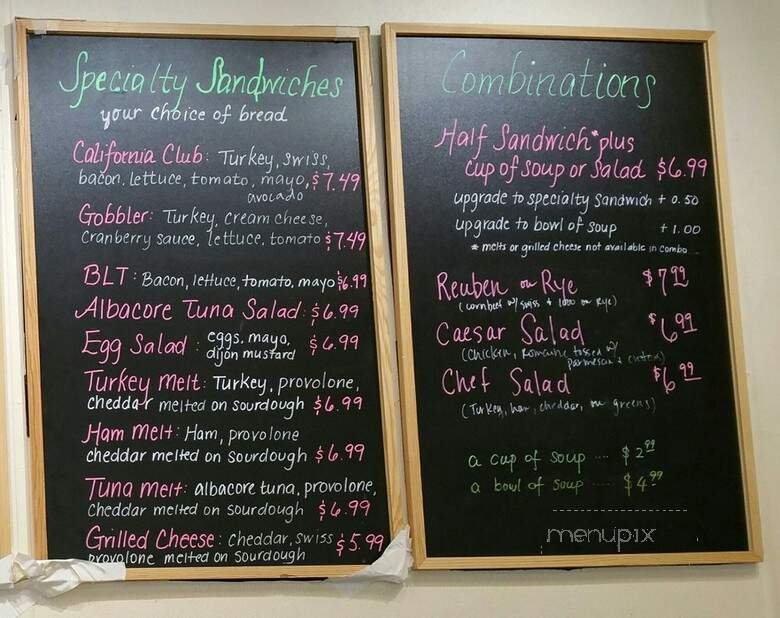 Specialty Sandwiches
your choice of bread
California Club: Turkey, swiss,
bacon, lettuce, tomato, mayo, $7.49
avocado
Gobbler: Turkey, cream cheese,
Cranberry sauce, lettuce, tomato $7.49
BLT: Bacon, lettuce, tomato, mayo $6.99
Albacore Tuna Salad: $6.99
Egg Salad: eggs, mayo,
dijon mustard $6.99
Turkey melt: Turkey, provolone,
cheddar melted on sourdough $6.99
Ham melt: Ham, provolone
cheddar melted on sourdough $6.99
Tuna melt: albacore tuna, provolone,
cheddar melted on sourdough $6.99
Grilled Cheese: cheddar, swiss $5.99
provolone melted on Sourdough
Combinations
Half Sandwich* plus
cup of soup or Salad $6.99
upgrade to specialty Sandwich + 0.50
upgrade to bowl of soup + 1.00
* melts or grilled cheese not available in combo
Reuben on Rye $7.99
(corn beef w/ swiss + 1000 on Rye)
Caesar Salad $6.99
(Chicken, Romaine tossed w/
parmesan +
Chef Salad $6.99
(Turkey, ham, cheddar, on greens)
a cup of soup .... $2.99
a bowl of soup .... $4.99
menupix